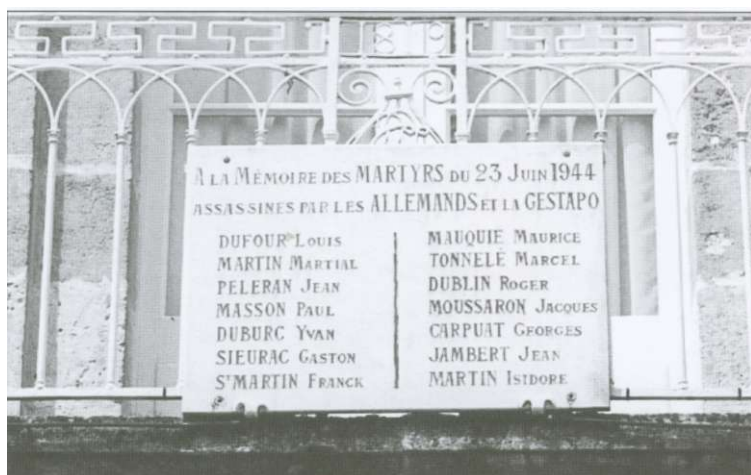 A LA MÉMOIRE DES MARTYRS DU 23 JUIN 1944
ASSASSINES PAR LES ALLEMANDS ET LA GESTAPO
DUFOUR LOUIS
MARTIN MARTIAL
PELERAN JEAN
MASSON PAUL
DUBURC YVAN
SIEURAC GASTON
ST MARTIN FRANCK
MAUQUIE MAURICE
TONNELÉ MARCEL
DUBLIN ROGER
MOUSSARON JACQUES
CARPUAT GEORGES
JAMBERT JEAN
MARTIN ISIDORE